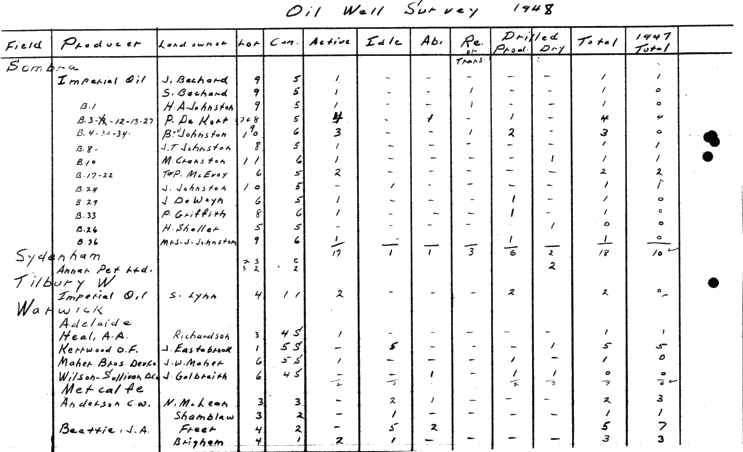 Oil Well Survey 1948
Field Producer Landowner Lot Con. Active Idle Ab. Re. or Trans. Drilled Prod. Dry Total 1947 Total
Sombra
Imperial Oil J. Bechard 9 5 1 - - - - - 1 1
S. Bechard 9 5 1 - - 1 - - 1 0
B.1 H.A Johnston 9 5 1 - - 1 - - 1 0
P. De Kort 4 - 1 - - - 4 4
B.4-30-34. Johnston 6 3 - - 1 2 - 3 0
B.8- J.T Johnston 8 5 1 - - - - - 1 1
B10 M. Cranston 11 6 1 - - - - 1 1 1
B.17-22 McEvoy 6 5 2 - - - - - 2 2
B.24 J. Johnston 10 5 - 1 - - - - 1 1
B 29 J. DeWeyn 6 5 1 - - - 1 - 1 0
B.33 P. Griffith 8 6 1 - - - 1 - 1 0
B.26 H. Shaller 5 5 - - - - - 1 0 0
B.36 Mrs. J. Johnston 9 6 1 - - - 1 - 1 0
17 1 1 3 6 2 18 10
Sydenham
Annar Pet Ltd. 2
Tilbury W
Imperial Oil S. Lynn 4 11 2 - - - 2 - 2 0
Warwick
Adelaide
Heal, A.A. Richardson 3 45 1 - - - - - 1 1
Kerrwood O.F. J. Eastabrook 1 55 - 5 - - - 1 5 5
Maher Bros. J.W. Maher 6 55 1 - - - 1 - 1 0
Wilson-Sullivan J. Galbraith 6 45 - - 1 - 1 1 0 0
Metcalfe
Anderson C.W. N. McLean 3 3 - 2 1 - - - 2 3
Shamblaw 3 2 - 1 - - - - 1 1
Beattie, J.A. Freer 4 2 - 5 2 - - - 5 7
Brigham 4 1 2 1 - - - - 3 3